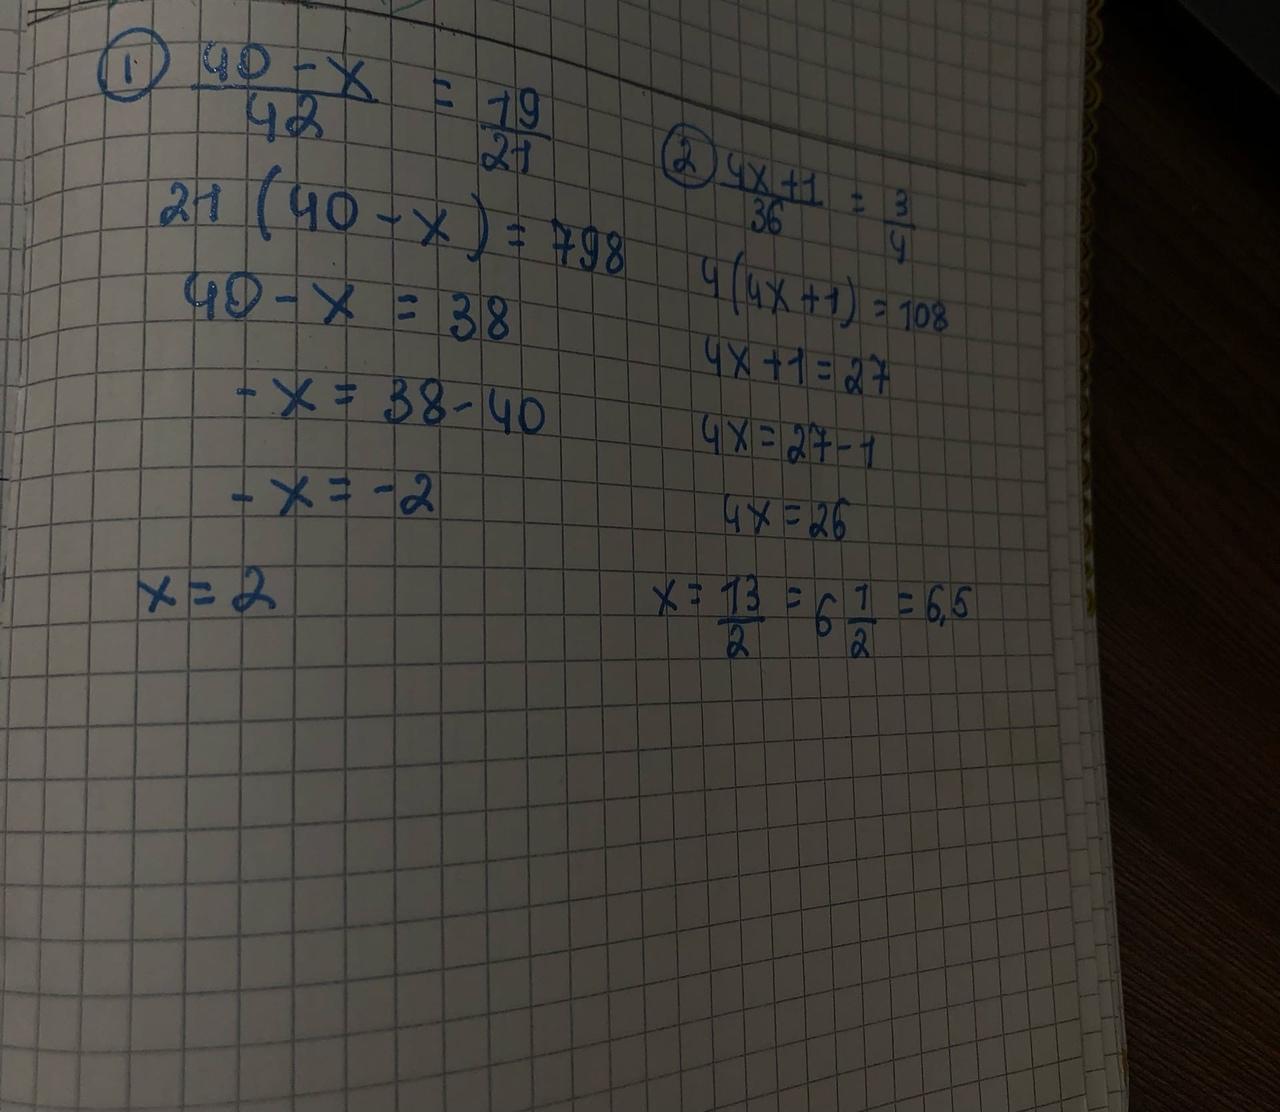 ① (40 - x)/42 = 19/21
21 (40 - x) = 798
40 - x = 38
- x = 38 - 40
- x = -2
x = 2
② (4x + 1)/36 = 3/4
4(4x + 1) = 108
4x + 1 = 27
4x = 27 - 1
4x = 26
x = 13/2 = 6 1/2 = 6,5